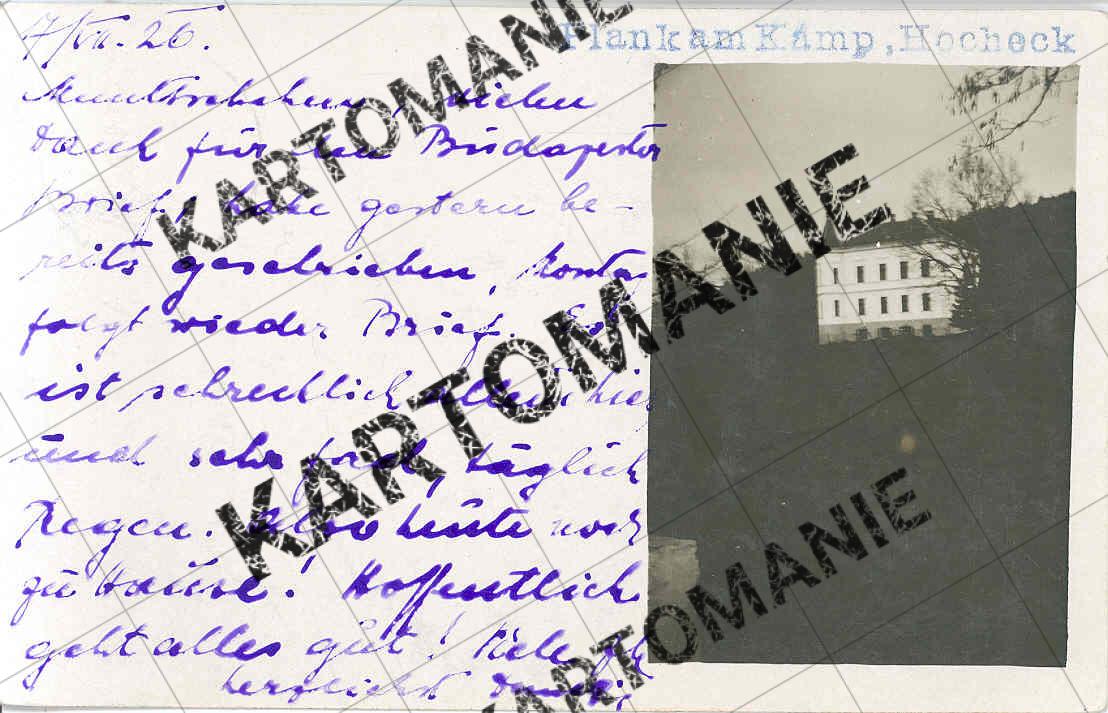 7/VII. 26.
Plank am Kamp, Hocheck
Dank für den Budapester
Brief, habe gestern be-
reits geschrieben,
folgt wieder Brief. Es
ist schrecklich allein hier
und sehr fad, täglich
Regen. Also heute noch
zu Hause! Hoffentlich
geht alles gut! Viele
herzlichst
KARTOMANIE
KARTOMANIE
KARTOMANIE
KARTOMANIE